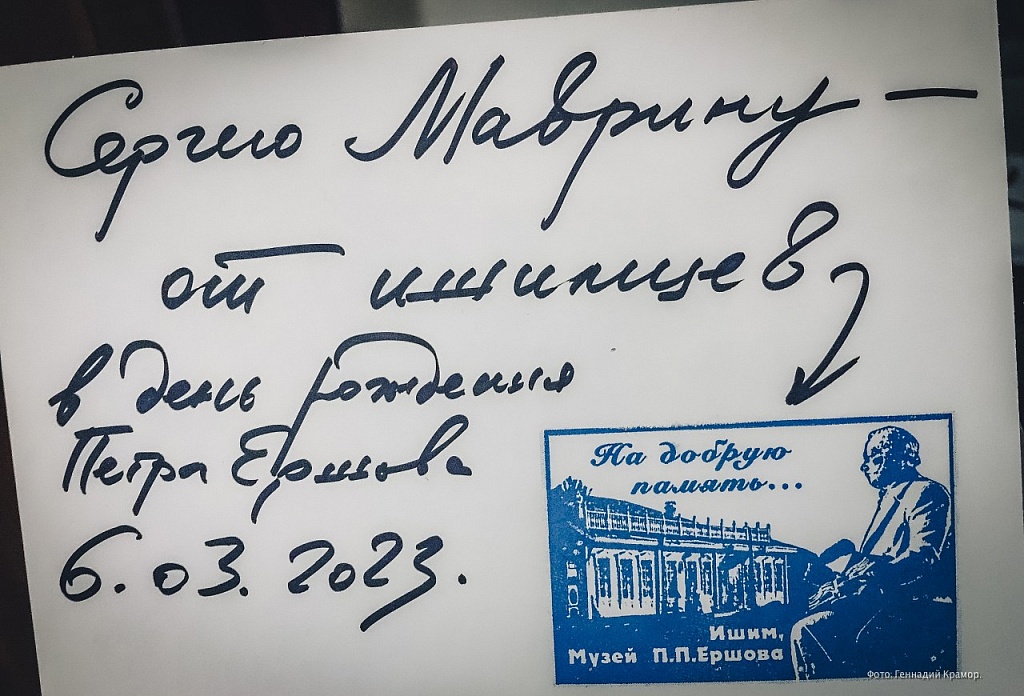 Сергею Маврину —
от ишимцев
в день рождения
Петра Ершова
6.03.2023.
На добрую
память...
Ишим,
Музей П.П.Ершова
Фото. Геннадий Крамор.